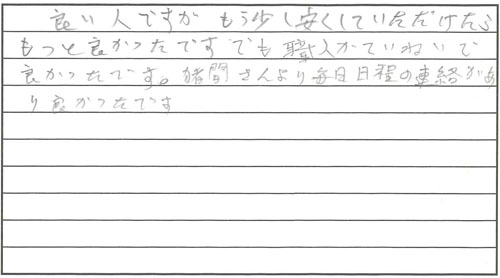 良い人ですが もう少し安くしていただけたら
もっと良かったです でも職人がていねいで
良かったです。猪間さんより毎日日程の連絡があ
り良かったです